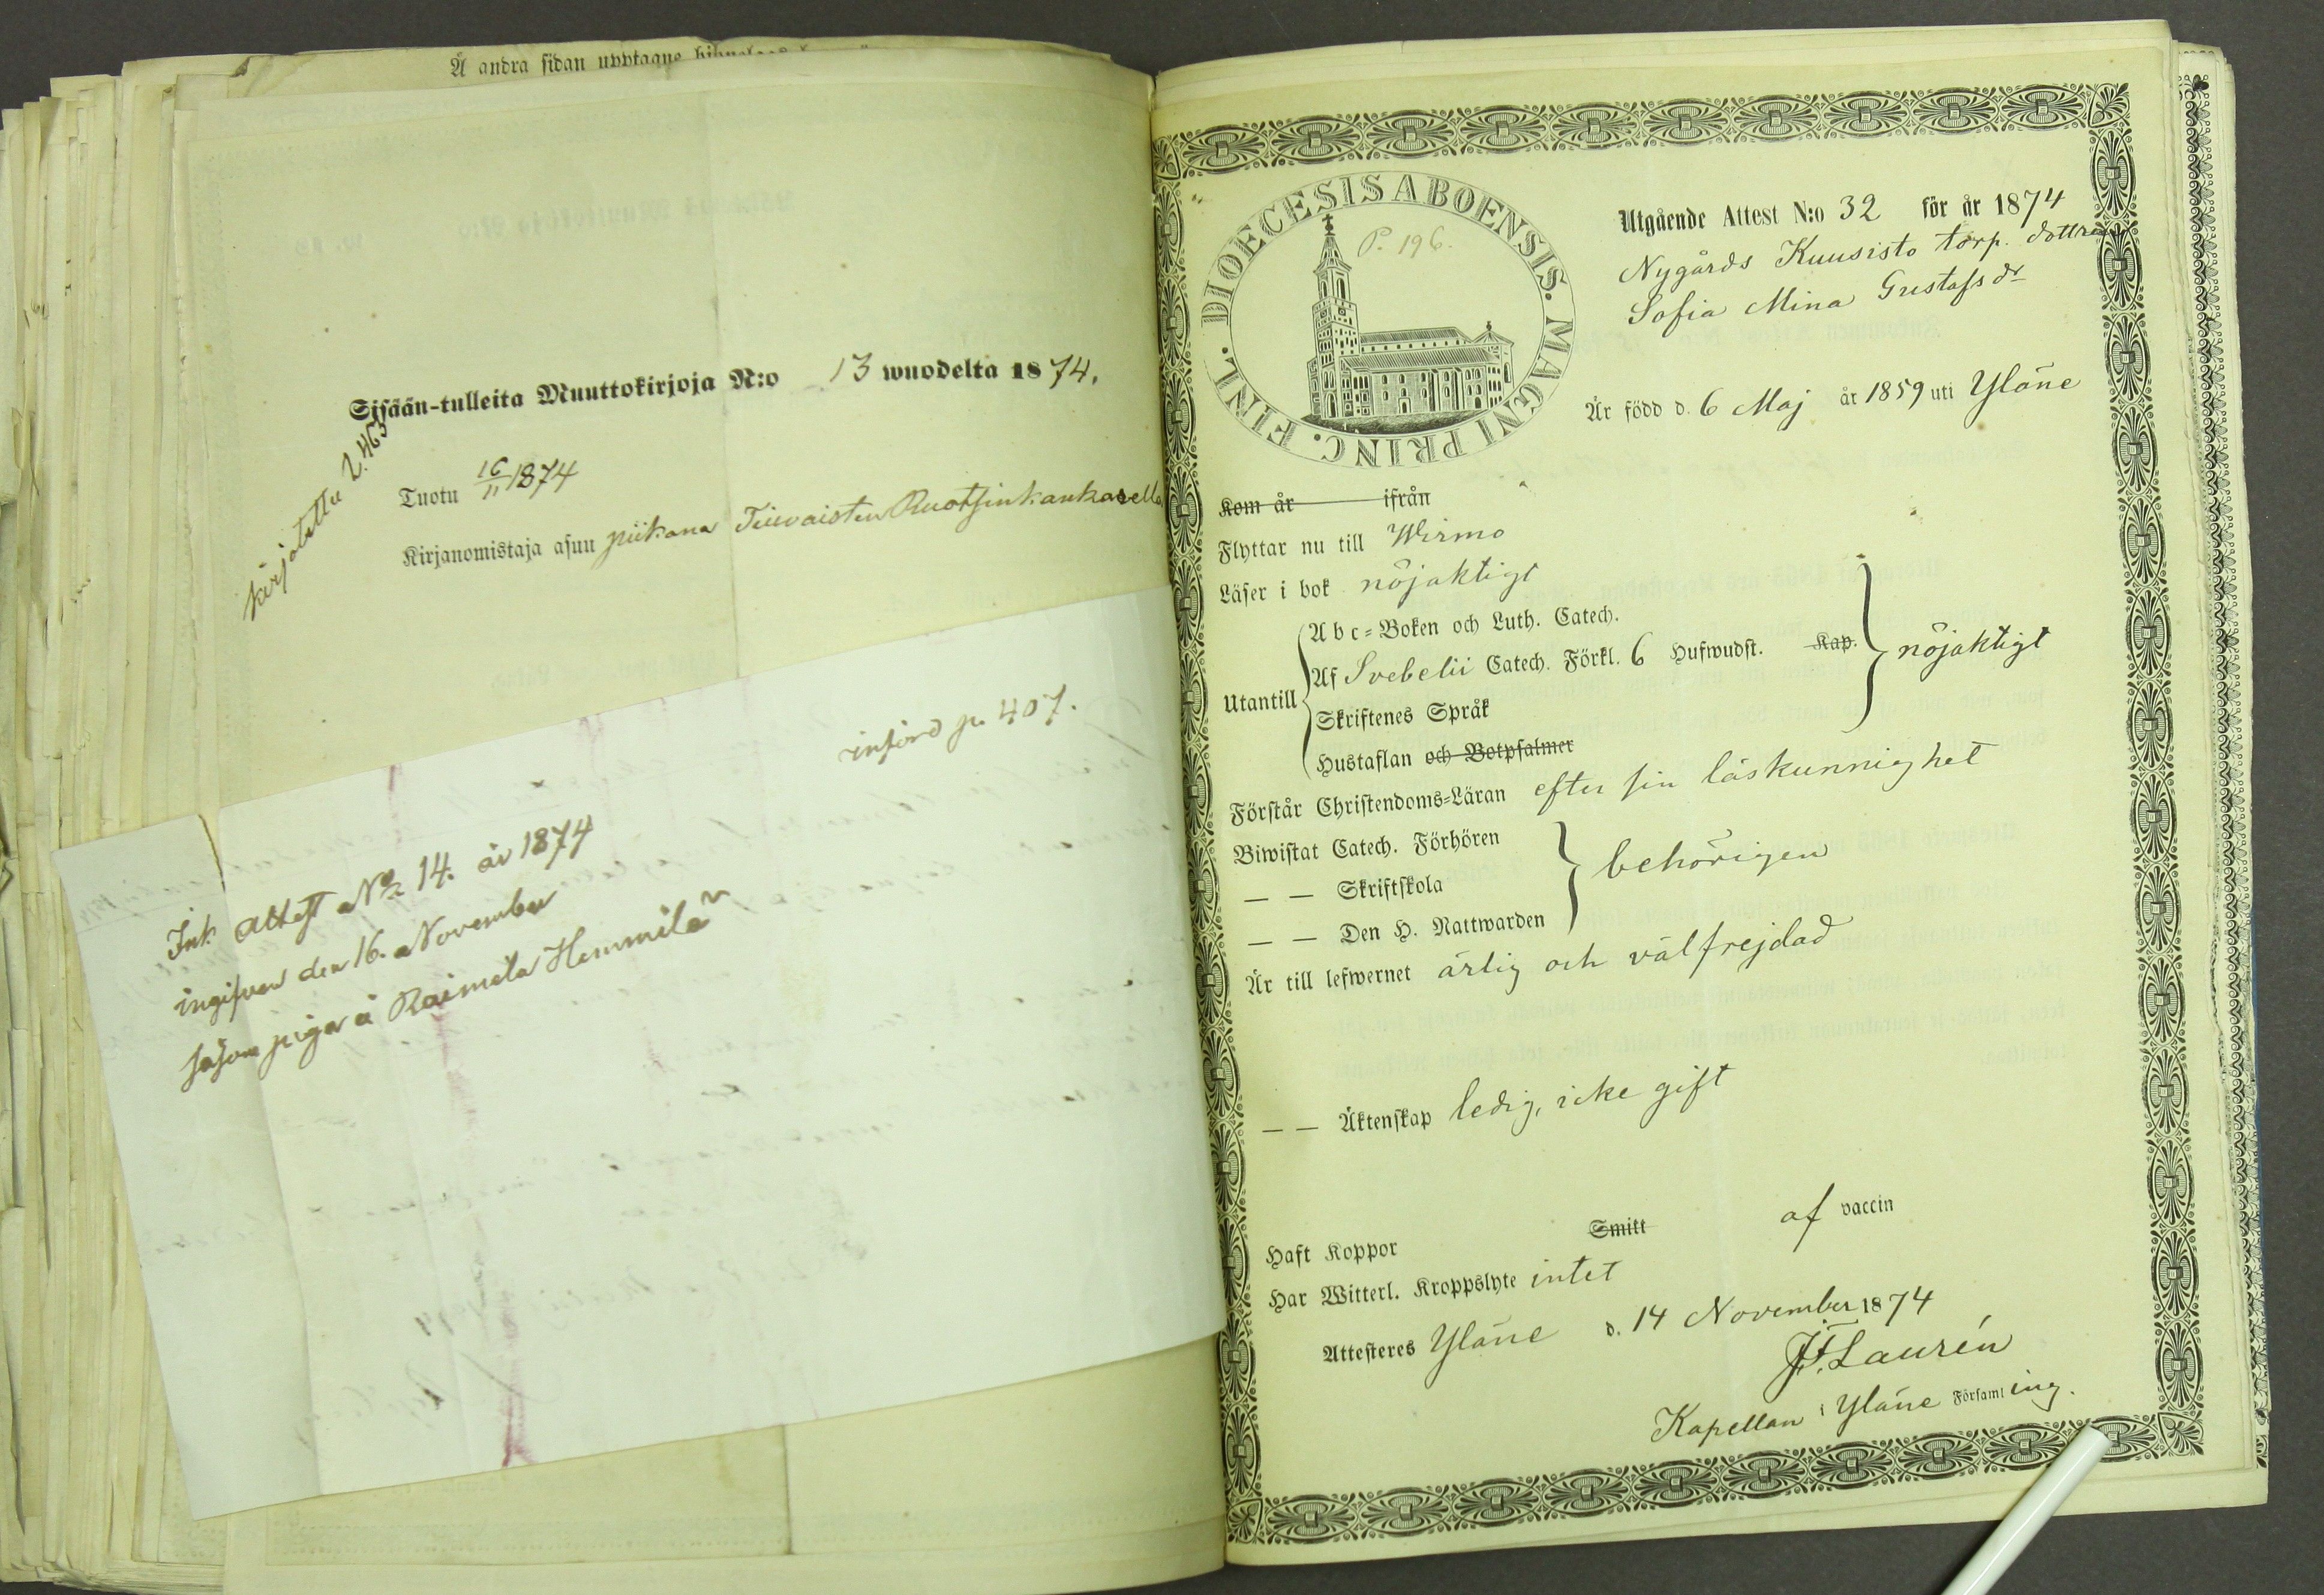 Å andra sidan upptagne
Sisään-tulleita Muuttokirjoja N:o 13 wuodelta 1874.
kirjotettu 2.463
Tuotu 16/11 1874
Kirjanomistaja asuu piikana Teiwaisten Ruotsinkankarella
införd p. 407.
Ink. Attest No 14. år 1874
ingifven den 16. November
såsom piga å Raimela Hemmilä
DIOECESIS ABOENSIS. MAGNI PRINC. FINL.
P. 196.
Utgående Attest N:o 32 för år 1874
Nygårds Kuusisto torp. dottren
Sofia Mina Gustafsdr
Är född d. 6 Maj år 1859 uti Yläne
Kom år ifrån
Flyttar nu till Wirmo
Läser i bok nöjaktigt
Utantill
Abc-Boken och Luth. Catech.
Af Svebelii Catech. Förkl. 6 Hufwudst. Kap.
Skriftenes Språk
Hustaflan och Botpsalmer
nöjaktigt
Förstår Christendoms-Läran efter sin läskunnighet
Biwistat Catech. Förhören
— — Skriftskola
— — Den H. Nattwarden
behörigen
Är till lefwernet ärlig och välfrejdad
— — Äktenskap ledig, icke gift
Haft Koppor Smitt af vaccin
Har Witterl. Kroppslyte intet
Attesteres Yläne d. 14 November 1874
J.F. Laurén
Kapellan i Yläne Församling.